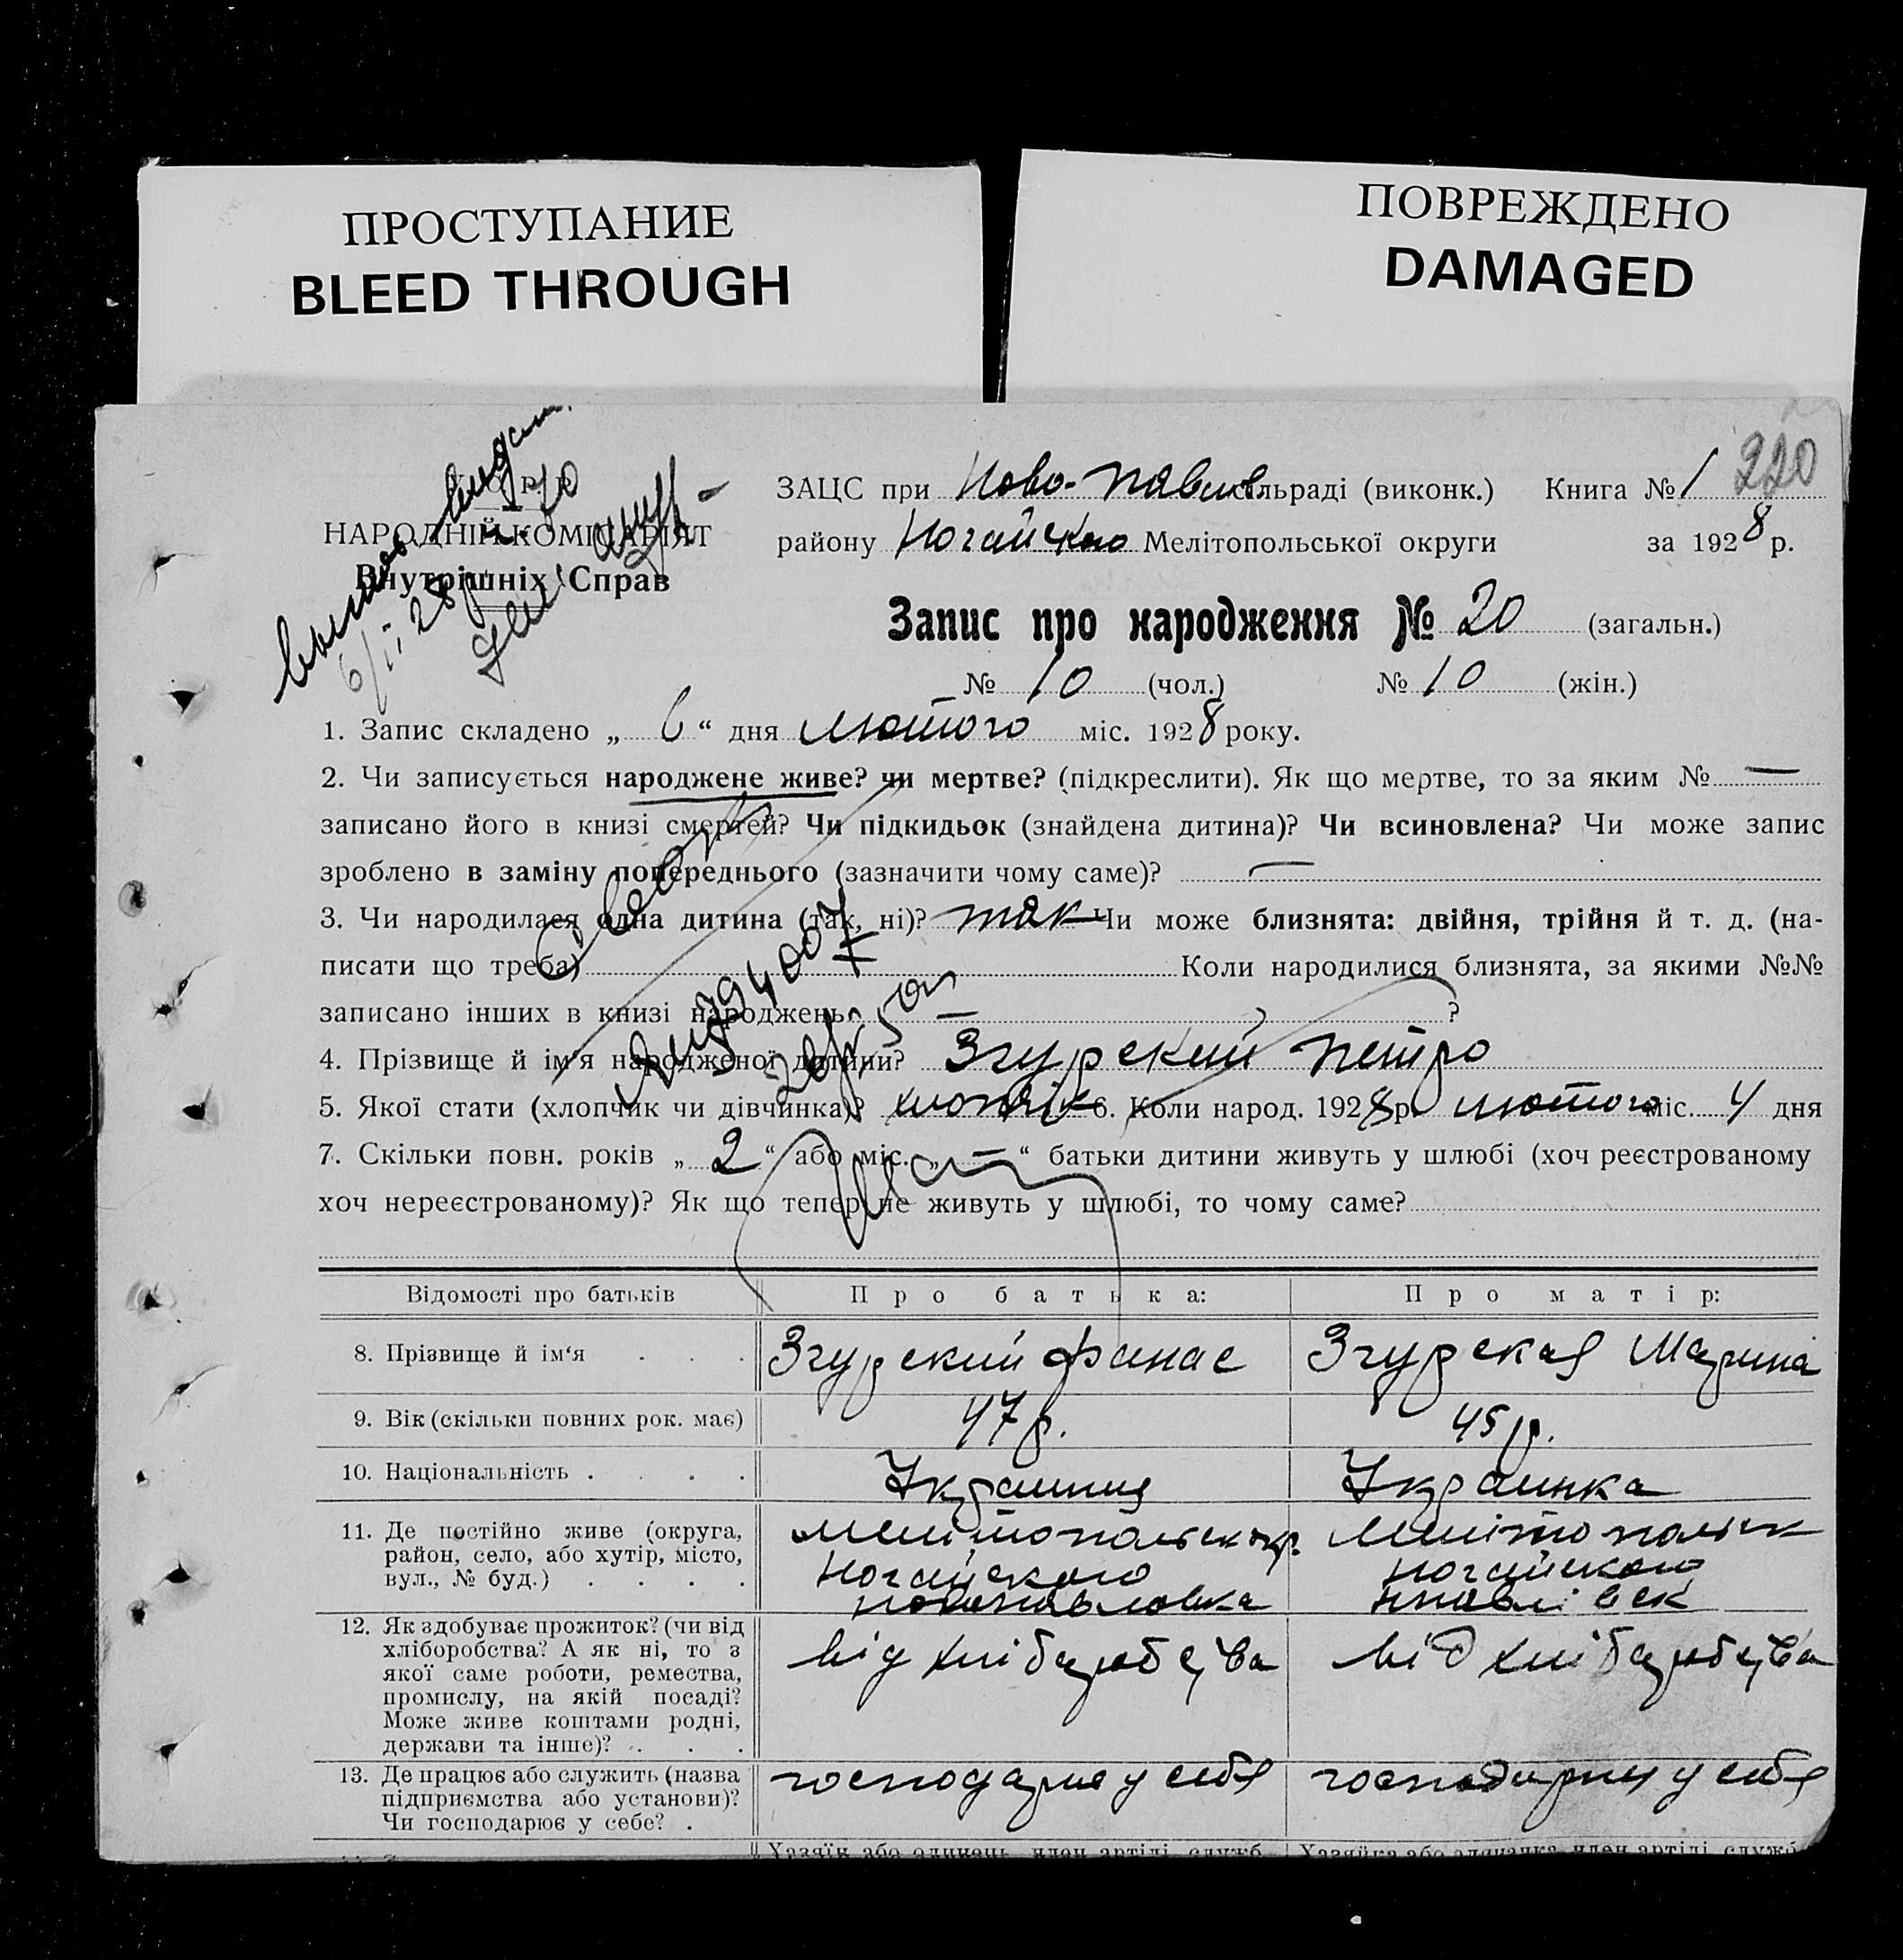 ПРОСТУПАНИЕ
BLEED THROUGH
ПОВРЕЖДЕНО
DAMAGED
220
НАРОДНІЙ КОМІСАРІЯТ
Внутрішніх Справ
6/II 28 р
ЗАЦС при Ново-Павлів. сільраді (виконк.) Книга № 1
району Ногайского Мелітопольської округи за 1928 р.
Запис про народження № 20 (загальн.)
№ 10 (чол.) № 10 (жін.)
1. Запис складено „ 6 “ дня лютого міс. 1928 року.
2. Чи записується народжене живе? чи мертве? (підкреслити). Як що мертве, то за яким № —
записано його в книзі смертей? Чи підкидьок (знайдена дитина)? Чи всиновлена? Чи може запис
зроблено в заміну попереднього (зазначити чому саме)? —
3. Чи народилася одна дитина (так, ні)? так Чи може близнята: двійня, трійня й т. д. (на-
писати що треба) Коли народилися близнята, за якими №№
записано інших в книзі народжень — ?
4. Прізвище й ім‘я народженої дитини? Згурский Петро
5. Якої стати (хлопчик чи дівчинка)? хлопчік 6. Коли народ. 1928 р. лютого міс. 4 дня
7. Скільки повн. років „ 2 “ або міс. „ — “ батьки дитини живуть у шлюбі (хоч реєстрованому
хоч нереєстрованому)? Як що тепер не живуть у шлюбі, то чому саме?
Відомості про батьків Про батька: Про матір:
8. Прізвище й ім‘я . . . Згурский Фанас Згурская Марина
9. Вік (скільки повних рок. має) 47 р. 45 р.
10. Національність . . . . Украинец Украинка
11. Де постійно живе (округа, Мелітопольск окр. Мелітопольск
район, село, або хутір, місто, Ногайского Ногайского
вул., № буд.) . . . . Новопавловка
12. Як здобуває прожиток? (чи від
хліборобства? А як ні, то з від хліборобства від хліборобства
якої саме роботи, ремества,
промислу, на якій посаді?
Може живе коштами родні,
держави та інше)? . . .
13. Де працює або служить (назва господарює у себя господарює у себя
підприємства або установи)?
Чи господарює у себе? .
Хазяїн або одинець, член артілі, служб. Хазяйка або одиначка, член артілі, служб